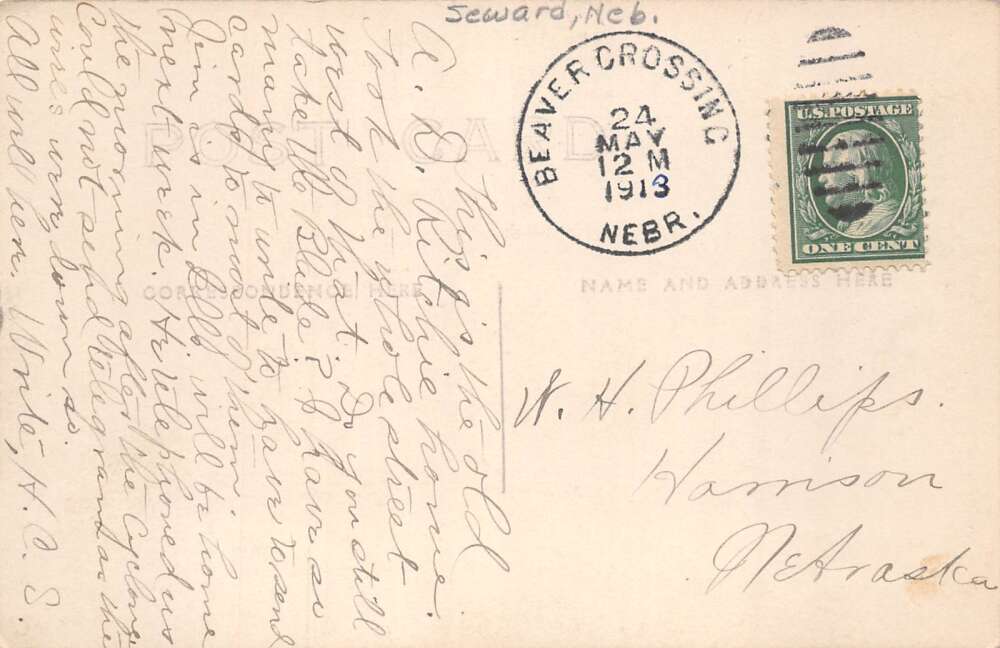 Seward, Neb.
BEAVER CROSSING
24
MAY
12 M
1913
NEBR.
U.S. POSTAGE
ONE CENT
POST CARD
CORRESPONDENCE HERE
NAME AND ADDRESS HERE
This is the old
A. D. Ritchie home.
Took the whole street
west of Do you still
take the Blade? I have so
many to write to have to send
cards to most of them.
Jim is in Ills will be home
next week. He telephoned us
the morning after the Cyclone
Could not send telegram as the
wires were down so.
All well here. Write, H. C. S.
W. H. Phillips.
Harrison
Nebraska